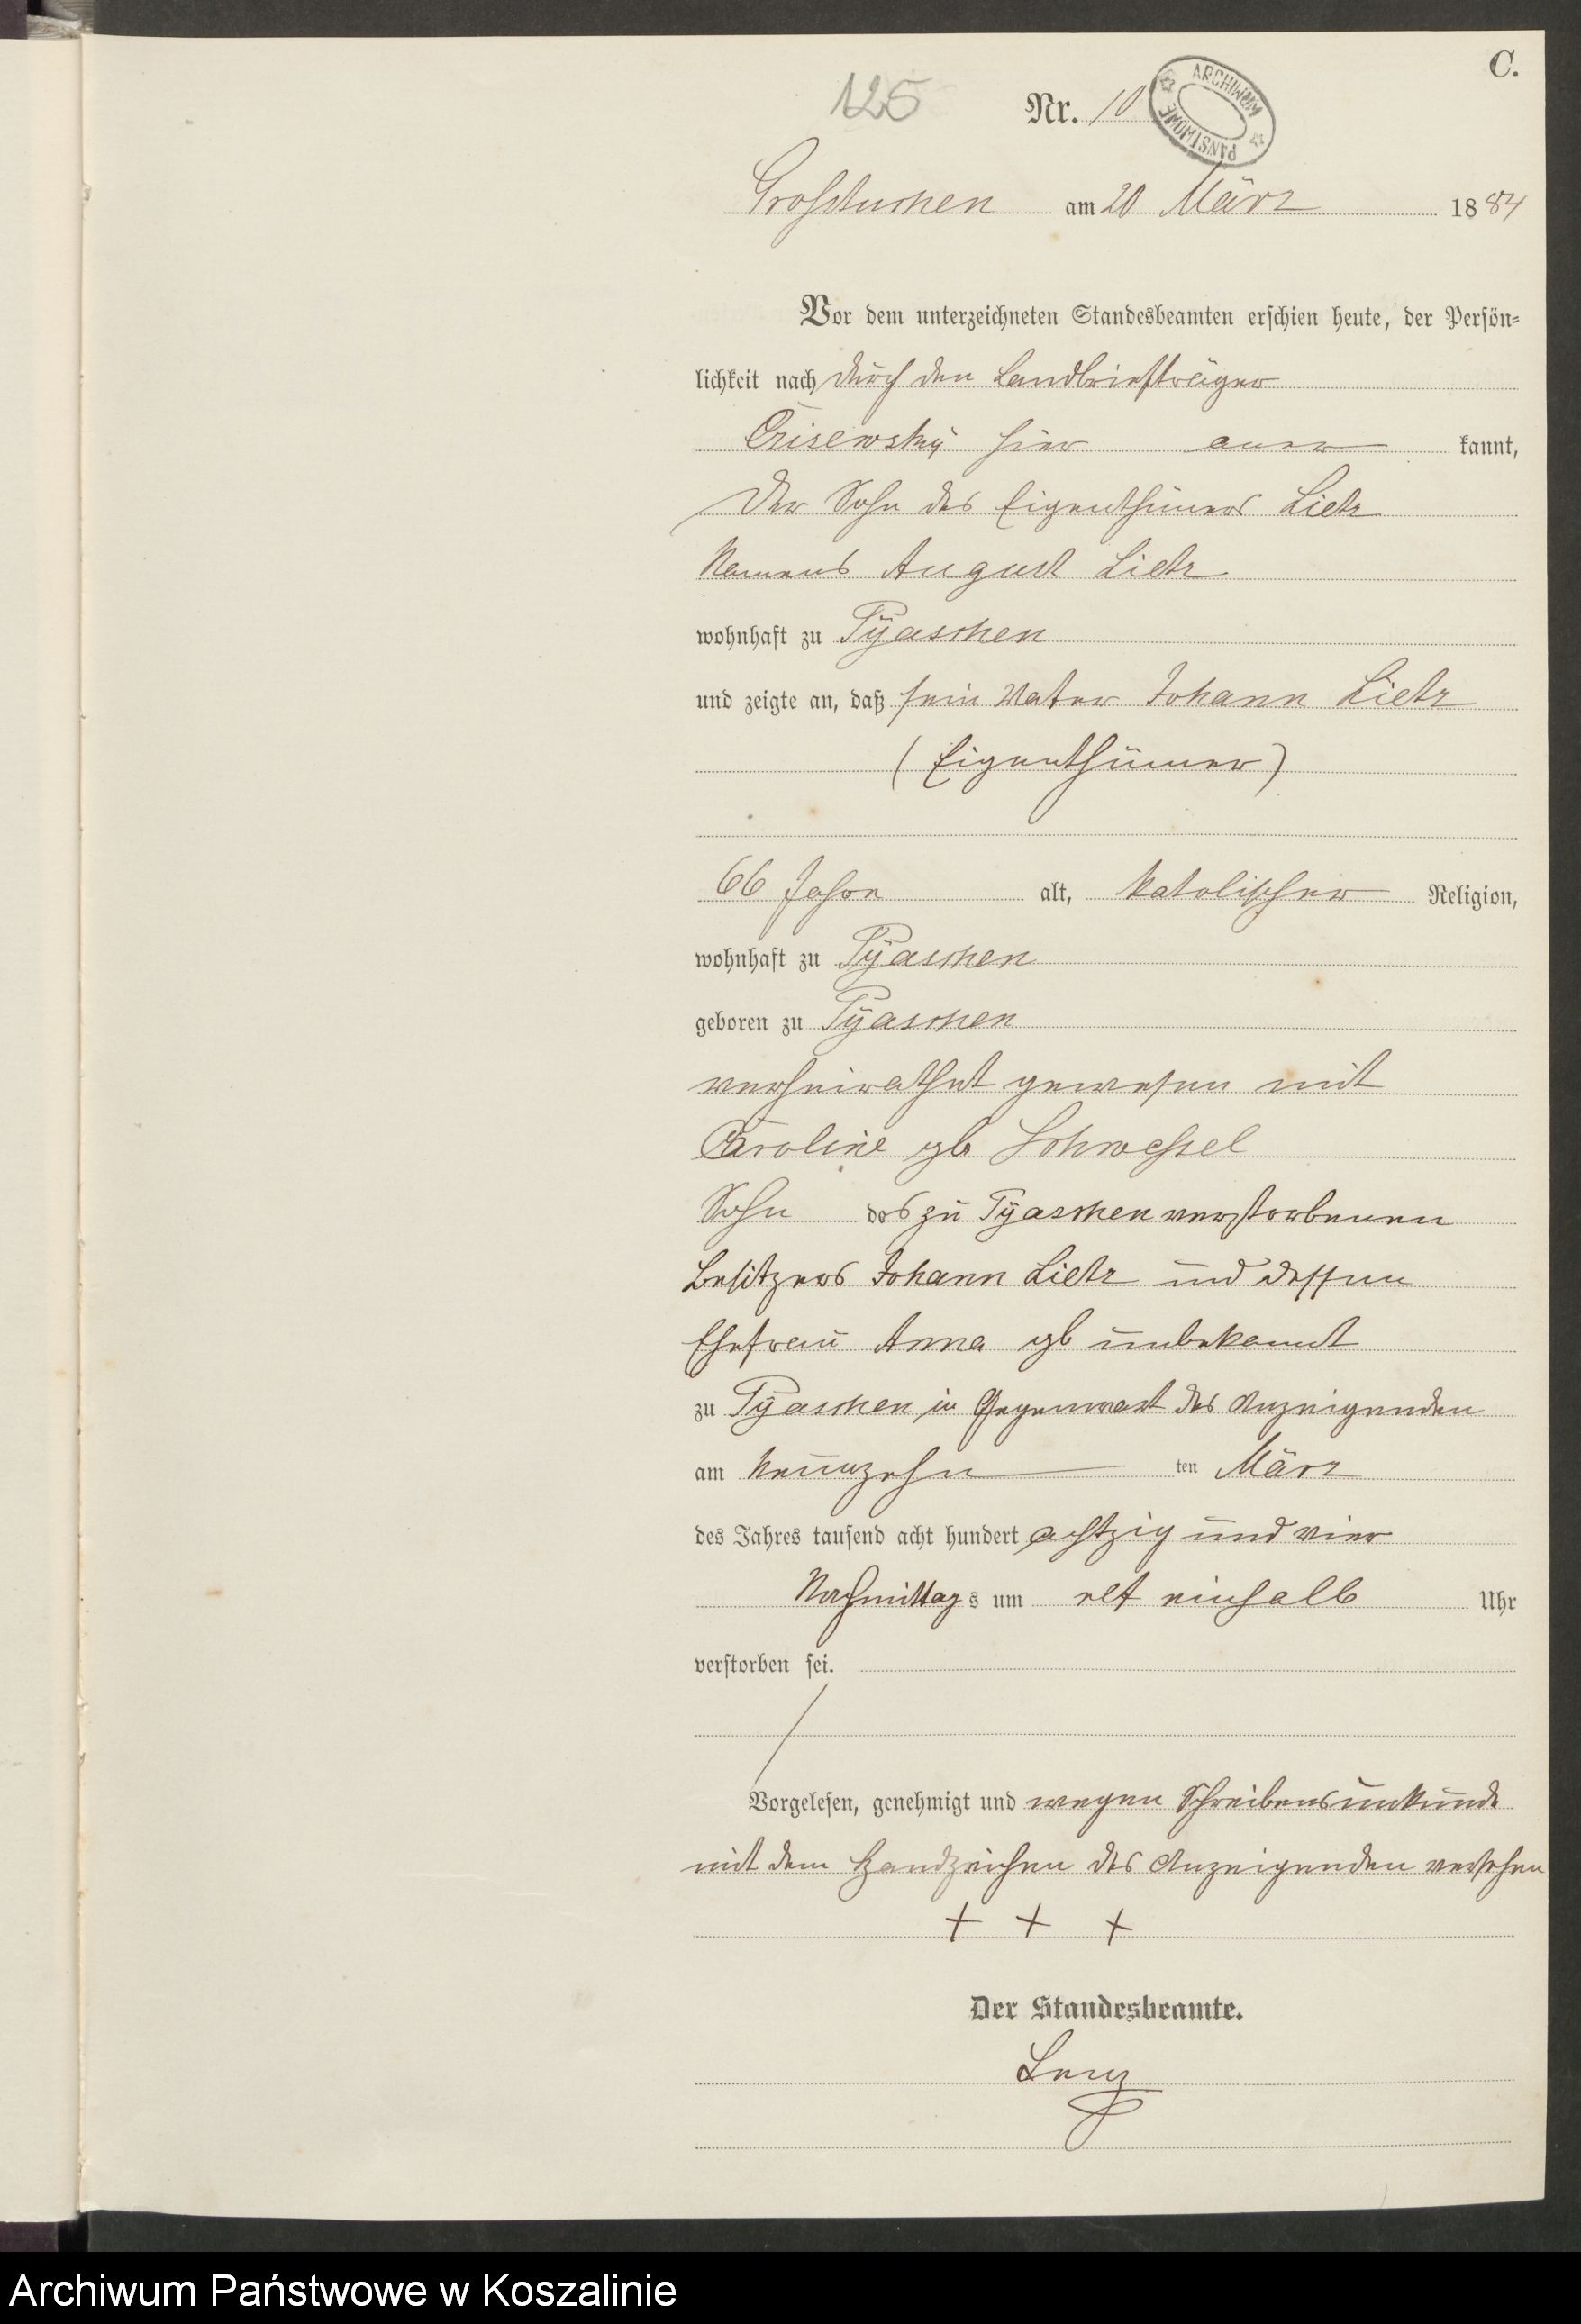 C.
125
Nr. 10
ARCHIWUM PAŃSTWOWE
Grosstuchen am 20 März 1884
Vor dem unterzeichneten Standesbeamten erschien heute, der Persön-
lichkeit nach durch den Landbriefträger
Czisewsky hier aner kannt,
Der Sohn des Eigenthümers Lietz
Namens August Lietz
wohnhaft zu Pÿaschen
und zeigte an, daß sein Vater Johann Lietz
(Eigenthümer)
66 Jahre alt, katolischer Religion,
wohnhaft zu Pÿaschen
geboren zu Pÿaschen
verheirathet gewesen mit
Caroline gb Schwessel
Sohn des zu Pÿaschen verstorbenen
Besitzers Johann Lietz und dessen
Ehefrau Anna gb unbekannt
zu Pÿaschen in Gegenwart des Anzeigenden
am Neunzehn ten März
des Jahres tausend acht hundert achtzig und vier
Nachmittags um elf einhalb Uhr
verstorben sei.
Vorgelesen, genehmigt und wegen Schreibensunkunde
mit dem Handzeichen des Anzeigenden versehen
+ + +
Der Standesbeamte.
Lenz
Archiwum Państwowe w Koszalinie